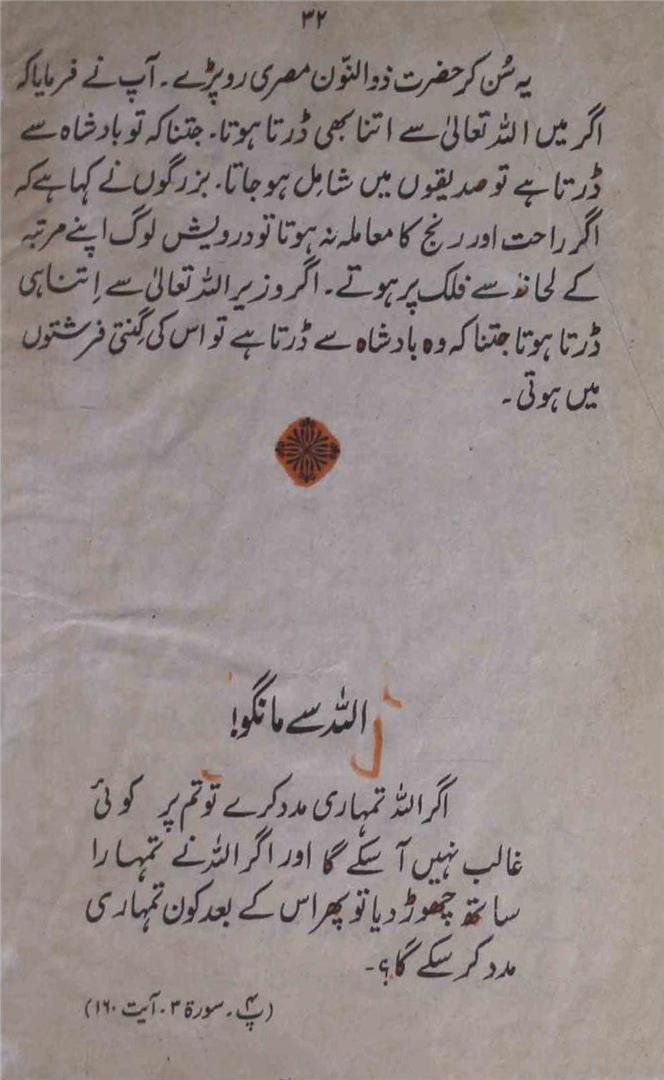 ۳۲
یہ سُن کر حضرت ذوالنّون مصری رو پڑے۔ آپ نے فرمایا کہ
اگر میں اللہ تعالیٰ سے اتنا بھی ڈرتا ہوتا۔ جتنا کہ تو بادشاہ سے
ڈرتا ہے تو صدیقوں میں شامِل ہو جاتا۔ بزرگوں نے کہا ہے کہ
اگر راحت اور رنج کا معاملہ نہ ہوتا تو درویش لوگ اپنے مرتبہ
کے لحاظ سے فلک پر ہوتے۔ اگر وزیر اللہ تعالیٰ سے اِتنا ہی
ڈرتا ہوتا جتنا کہ وہ بادشاہ سے ڈرتا ہے تو اس کی گِنتی فرشتوں
میں ہوتی۔
اللہ سے مانگو!
اگر اللہ تمہاری مدد کرے تو تم پر کوئی
غالب نہیں آ سکے گا اور اگر اللہ نے تمہارا
ساتھ چھوڑ دیا تو پھر اس کے بعد کون تمہاری
مدد کر سکے گا؟۔
(پ۴۔ سورۃ ۳۔ آیت ۱۶۰)